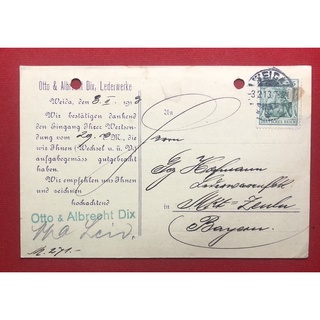 Otto & Albrecht Dix, Lederwerke
Weida, den 3. II. 1913
Wir bestätigen dankend
den Eingang Ihrer Wertsen-
dung vom 29. v. M., die
wir Ihnen (Wechsel u. u. V.)
aufgabegemäss gutgebracht
haben.
Wir empfehlen uns Ihnen
und zeichnen
hochachtend
Otto & Albrecht Dix
M. 271.-
An
Georg Hofmann
in Mitt-
Bayern
WEIDA
-3.2.13.
DEUTSCHES REICH